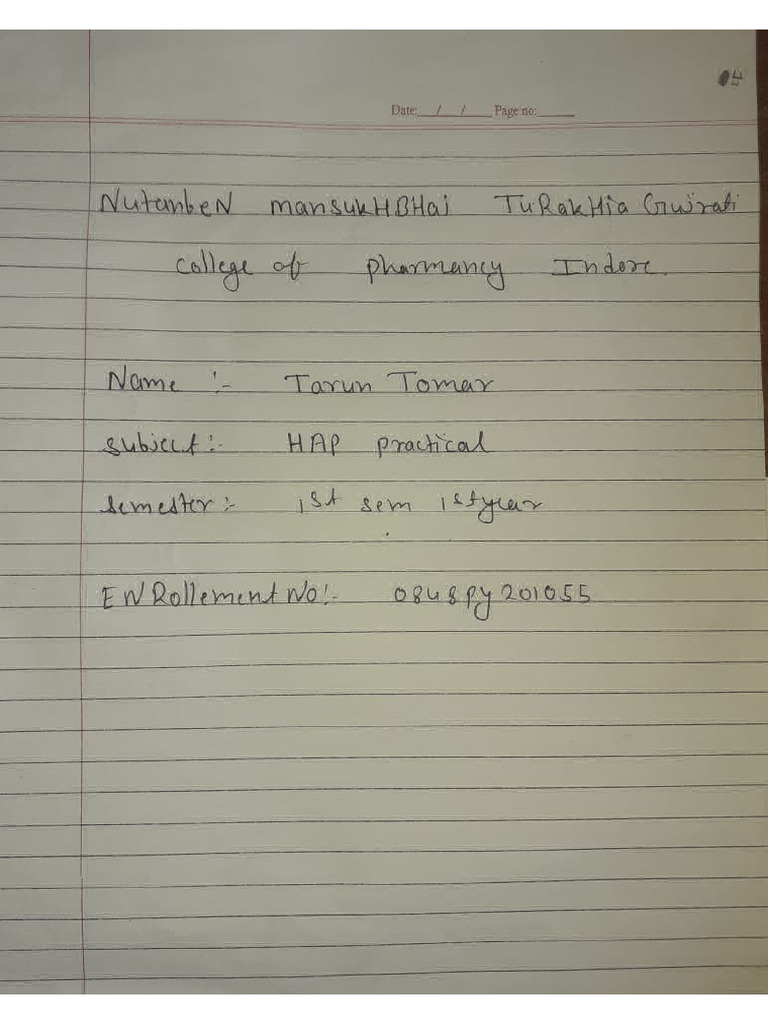 04
Date: / / Page no:
NutanbeN mansukHBHai TuRakHia Gujrati
college of pharmancy Indore.
Name :- Tarun Tomar
subject :- HAP practical
semester :- 1st sem 1st year
ENRollement No :- 0848py201055